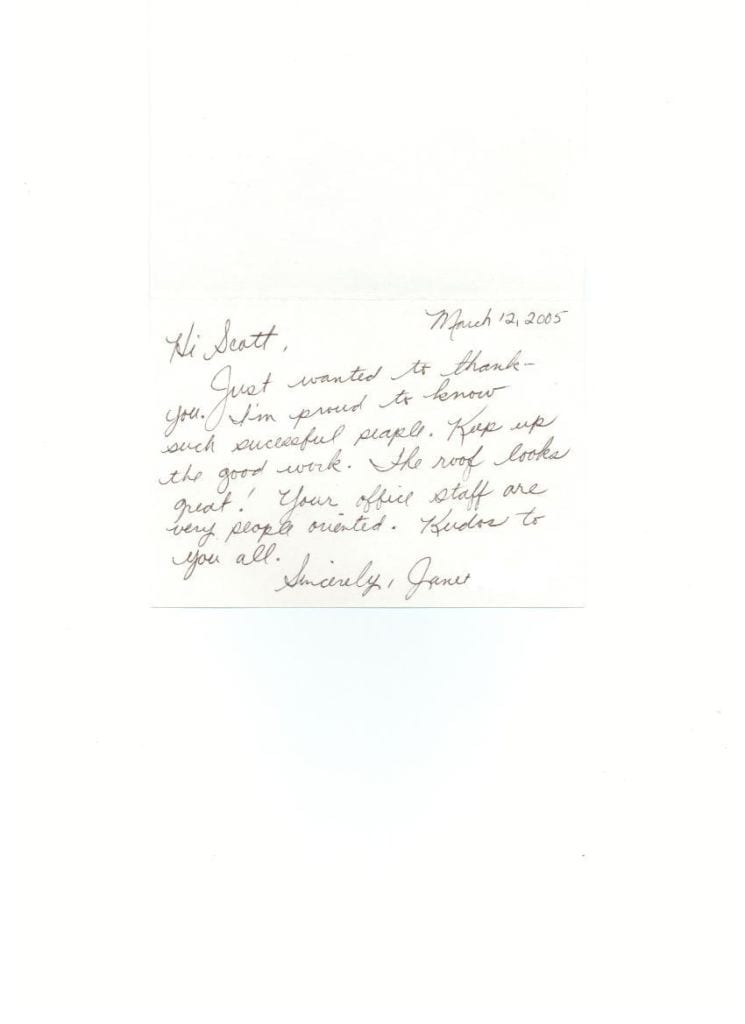 March 12, 2005
Hi Scott,
Just wanted to thank-
you. I'm proud to know
such successful people. Keep up
the good work. The roof looks
great! Your office staff are
very people oriented. Kudos to
you all.
Sincerely, Janet